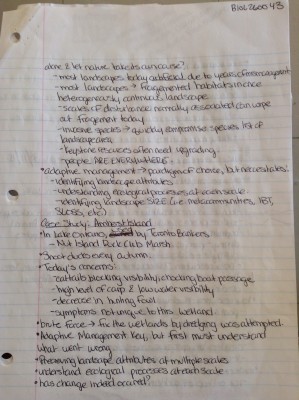 BIOL 2600 43
alone & let nature take its own course?
- most landscapes today artificial due to years of management
- most landscapes → fragmented habitats in once
heterogeneously continuous landscape
- scales of disturbance normally associated can wipe
out fragment today
- invasive species → quickly compromise species list of
landscape area
- Keystone resources often need upgrading
- people ARE EVERYWHERE
• adaptive management → paradigm of choice, but necessitates:
- identifying landscape attributes
- understanding ecological processes at each scale
- identifying landscape SIZE (i.e. metacommunities, TBT,
SLOSS, etc.)
Case Study: Amherst Island
• In Lake Ontario, by Toronto Bankers
- Nut Island Duck Club Marsh.
• Shoot ducks every autumn.
• Today's concerns:
- cattails blocking visibility, choking boat passage
- high level of carp & low water visibility
- decrease in hunting fowl
- symptoms not unique to this wetland.
• brute force → fix the wetlands by dredging was attempted
• Adaptive Management key, but first must understand
what went wrong
• Preserving landscape attributes at multiple scales
• understand ecological processes at each scale
• has change indeed occurred?